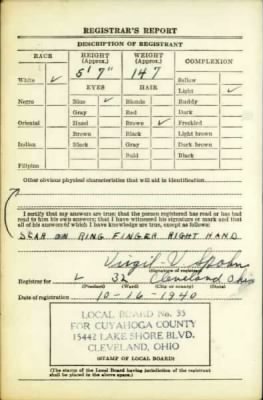 REGISTRAR'S REPORT
DESCRIPTION OF REGISTRANT
RACE HEIGHT (Approx.) WEIGHT (Approx.) COMPLEXION
5' 7" 147
White ✓ Sallow
EYES HAIR Light ✓
Negro Blue ✓ Blonde Ruddy
Gray Red Dark
Oriental Hazel Brown ✓ Freckled
Brown Black Light brown
Indian Black Gray Dark brown
Bald Black
Filipino
Other obvious physical characteristics that will aid in identification
I certify that my answers are true; that the person registered has read or has had
read to him his own answers; that I have witnessed his signature or mark and that
all of his answers of which I have knowledge are true, except as follows:
SCAR ON RING FINGER RIGHT HAND
Virgil V. Spohn
(Signature of registrar)
Registrar for 32 Cleveland Ohio
(Precinct) (Ward) (City or county) (State)
Date of registration 10-16-1940
LOCAL BOARD No. 35
FOR CUYAHOGA COUNTY
15442 LAKE SHORE BLVD.
CLEVELAND, OHIO
(STAMP OF LOCAL BOARD)
(The stamp of the Local Board having jurisdiction of the registrant
shall be placed in the above space.)